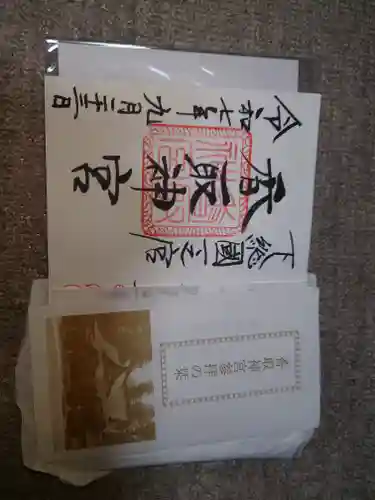 下総國一之宮
香取神宮
令和七年九月二十三日
香取神宮参拝の栞